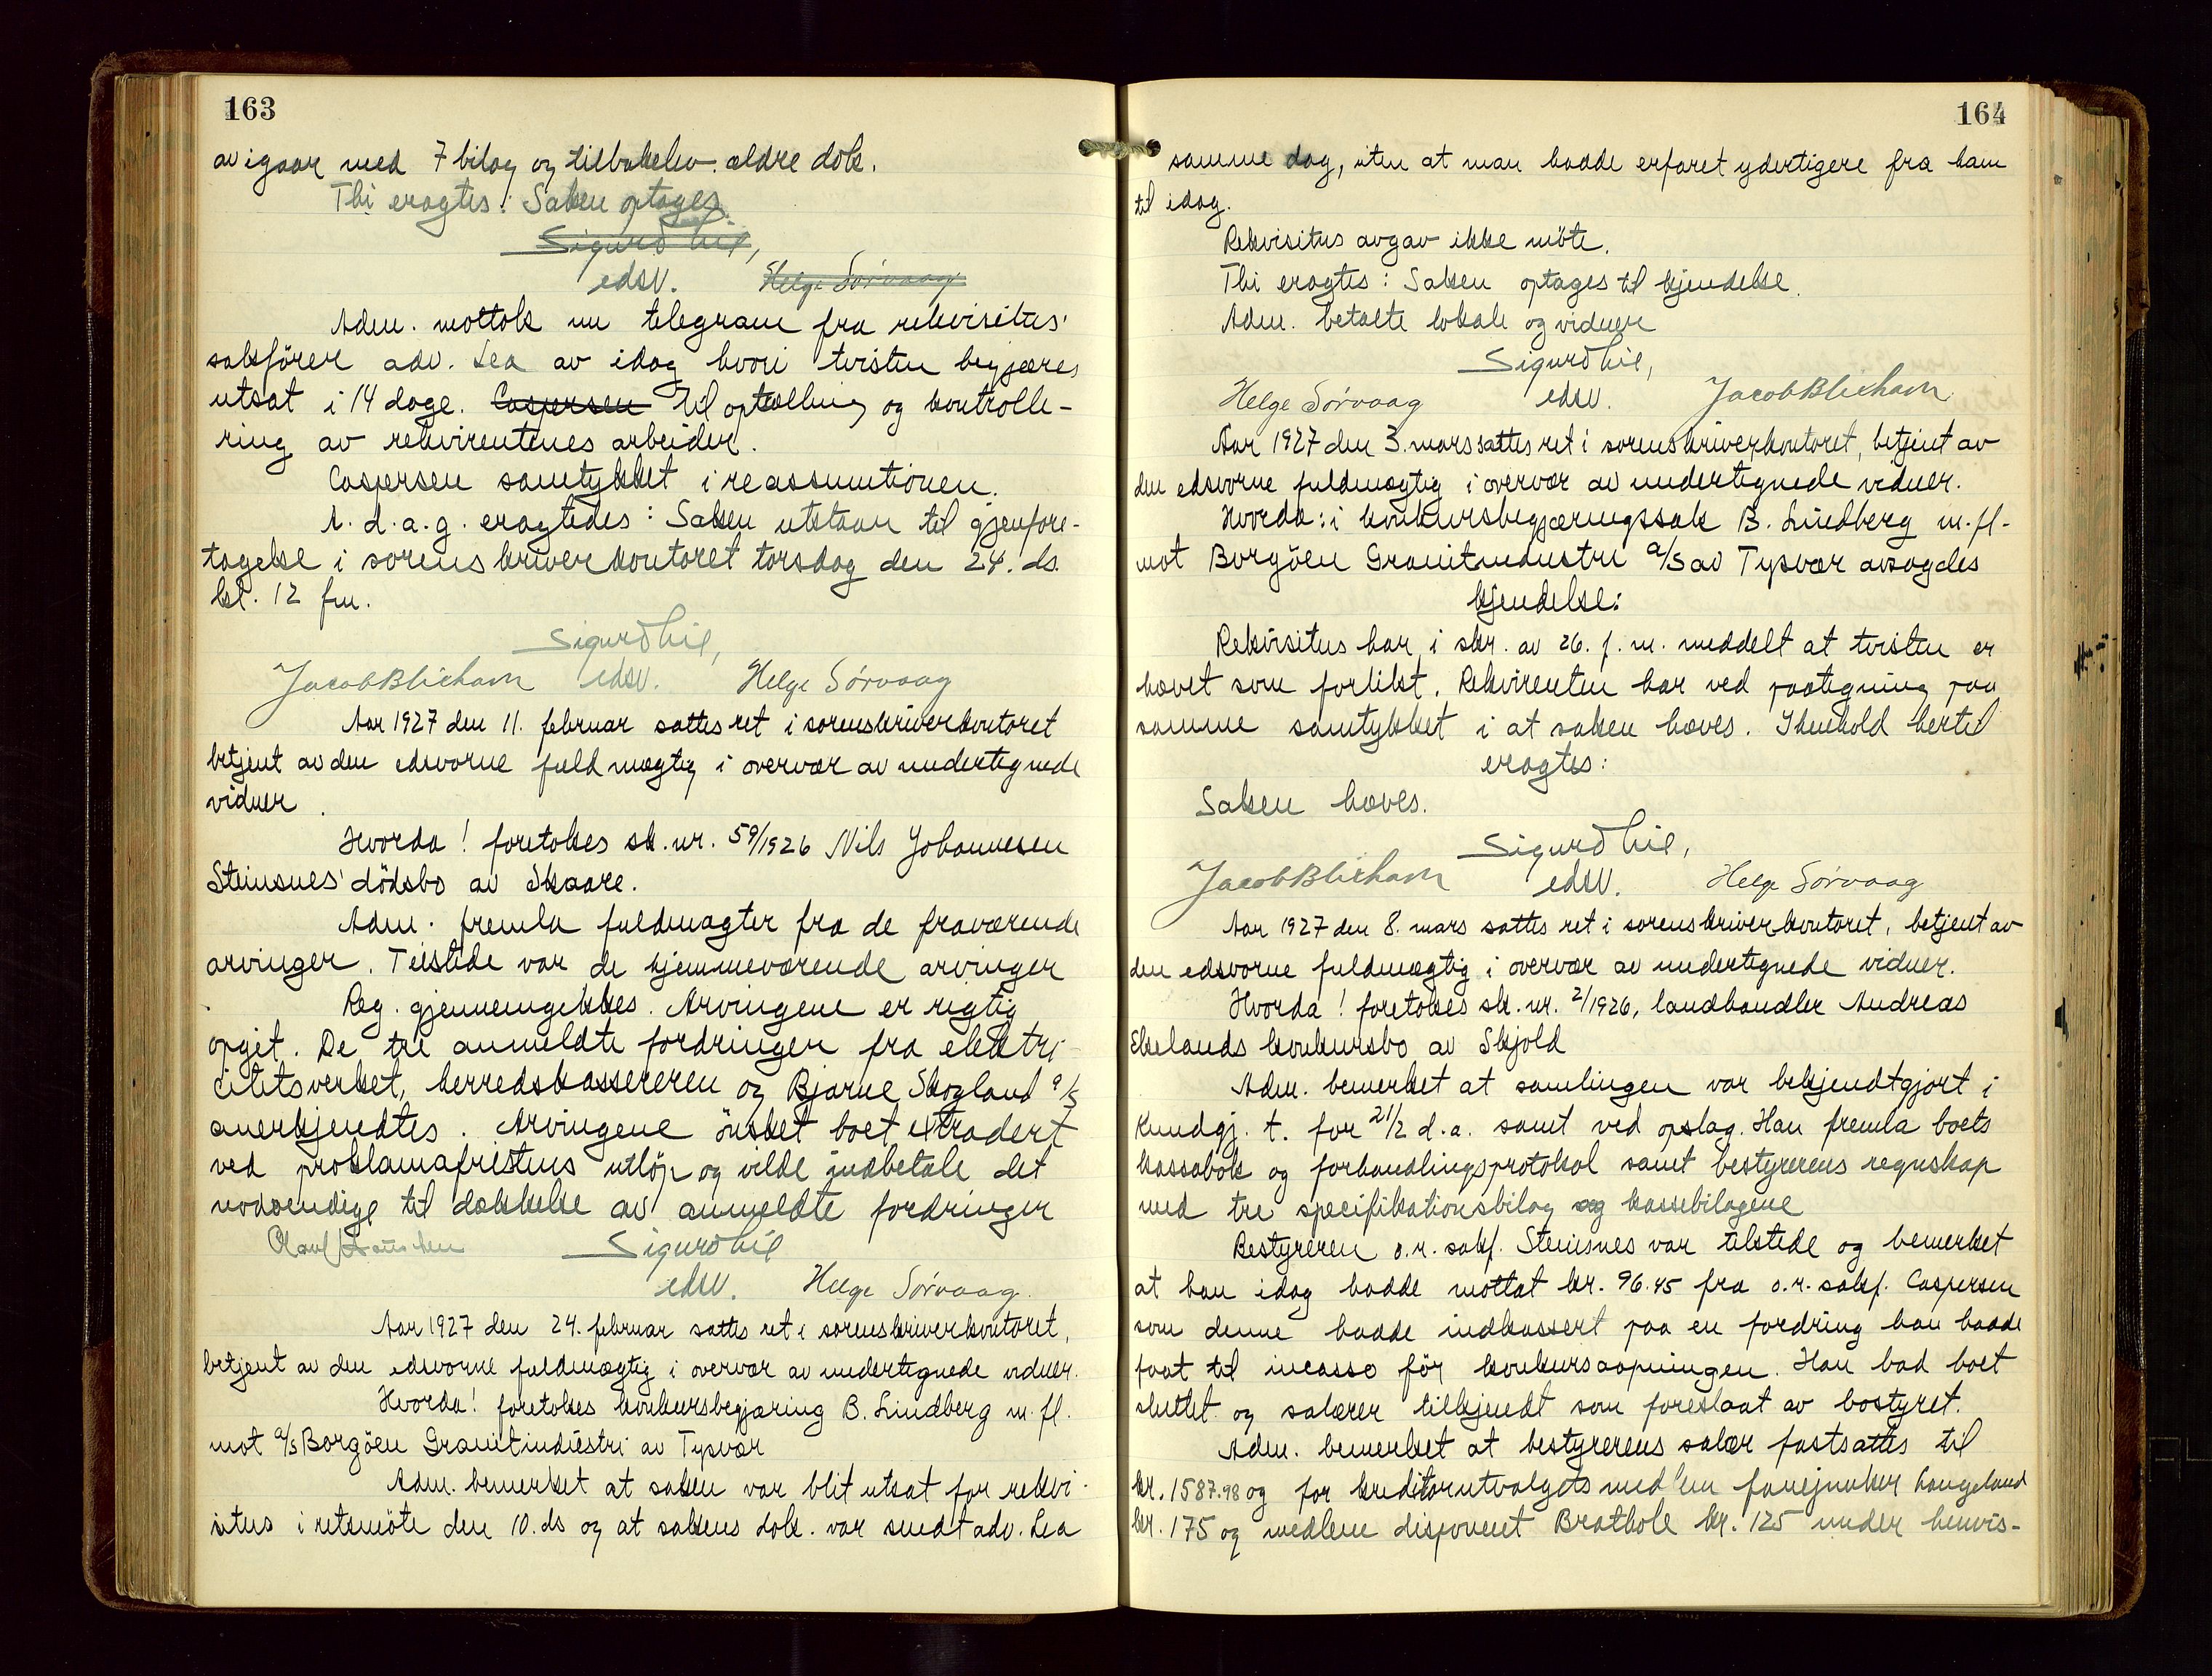 163
av igaar med 7 bilag og tilbakelev. ældre dok.
Thi eragtes: Saken optages
Sigurd Lie,
edsv. Helge Sörvaag
Adm. mottok nu telegram fra rekvisitus'
sakförer adv. Lea av idag hvori tvisten begjæres
utsat i 14 dage. Caspersen til optælling og kontrolle-
ring av rekvirentenes arbeider.
Caspersen samtykket i reassumtionen.
A. d. a. g. eragtedes: Saken utstaar til gjenfore-
tagelse i sorenskriverkontoret torsdag den 24. ds.
kl. 12 fm.
Sigurd Lie,
Jacob Blixhavn edsv. Helge Sörvaag
Aar 1927 den 11. februar sattes ret i sorenskriverkontoret
betjent av den edsvorne fuldmægtig i overvær av undertegnede
vidner.
Hvorda! foretokes sk. nr. 59/1926 Nils Johannesen
Steinsnes' dödsbo av Skaare.
Adm. fremla fuldmagter fra de fraværende
arvinger. Tilstede var de hjemmeværende arvinger
Reg. gjennemgikkes. Arvingene er rigtig
opgit. De tre anmeldte fordringer fra elektri-
citetsverket, herredskassereren og Bjarne Skogland a/s
anerkjendtes. Arvingene önsket boet extradert
ved proklamafristens utlöp og vilde indbetale det
nodvendige til dækkelse av anmeldte fordringer
Olaf Sigurd Lie
edsv. Helge Sörvaag.
Aar 1927 den 24. februar sattes ret i sorenskriverkontoret,
betjent av den edsvorne fuldmægtig i overvær av undertegnede vidner.
Hvorda! foretokes konkursbegjæring B. Lindberg m. fl.
mot a/s Borgöen Granitindustri av Tysvær
Adm. bemerket at saken var blit utsat for rekvi-
situs i retsmöte den 10. ds og at sakens dok. var sendt adv. Lea
164
samme dag, uten at man hadde erfaret ydertigere fra ham
til idag.
Rekvisitus avgav ikke möte.
Thi eragtes: Saken optages til kjendelse.
Adm. betalte lokale og vidner
Sigurd Lie,
Helge Sörvaag edsv. Jacob Blixhavn
Aar 1927 den 3. mars sattes ret i sorenskriverkontoret, betjent av
den edsvorne fuldmægtig i overvær av undertegnede vidner.
Hvorda: i konkursbegjæringssak B. Lindberg m. fl.
mot Borgöen Granitindustri a/s av Tysvær avsagdes
kjendelse:
Rekvisitus har i skr. av 26. f. m. meddelt at tvisten er
hævet som forlikt. Rekvirenten har ved paategning paa
samme samtykket i at saken hæves. I henhold hertil
eragtes:
Saken hæves.
Sigurd Lie,
Jacob Blixhavn edsv. Helge Sörvaag
Aar 1927 den 8. mars sattes ret i sorenskriverkontoret, betjent av
den edsvorne fuldmægtig i overvær av undertegnede vidner.
Hvorda! foretokes sk. nr. 2/1926, landhandler Andreas
Ekelands konkursbo av Skjold
Adm. bemerket at samlingen var bekjendtgjort i
Kundgj. t. for 21/2 d. a. samt ved opslag. Han fremla boets
kassabok og forhandlingsprotokol samt bestyrerens regnskap
med tre specifikationsbilag og kassebilagene
Bestyreren o.r. sakf. Steinsnes var tilstede og bemerket
at han idag hadde mottat kr. 96.45 fra o.r. sakf. Caspersen
som denne hadde indkassert paa en fordring han hadde
faat til incasso för konkursaapningen. Han bad boet
sluttet og salærer tilkjendt som foreslaat av bostyret.
Adm. bemerket at bestyrerens salær fastsattes til
kr. 1587.98 og for kreditorutvalgets medlem Langeland
kr. 175 og medlem disponent Brathole kr. 125 under henvis-